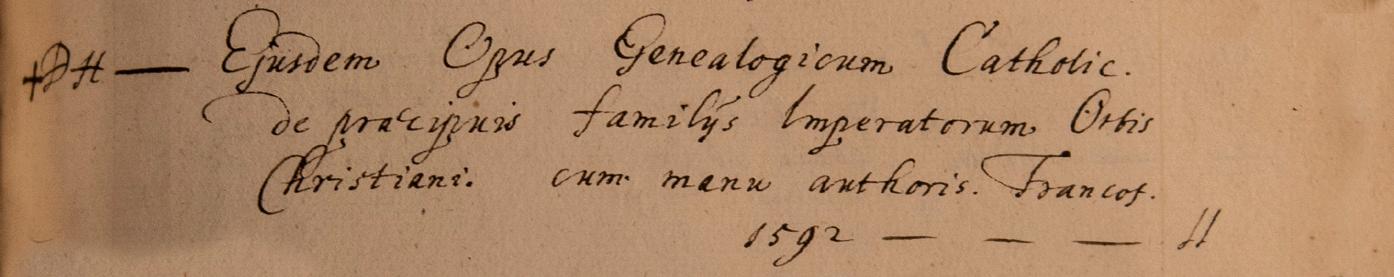 +DH — Ejusdem Opus Genealogicum Catholic.
de præcipuis familijs Imperatorum Orbis
Christiani. cum manu authoris. Francof.
1592 — — — II